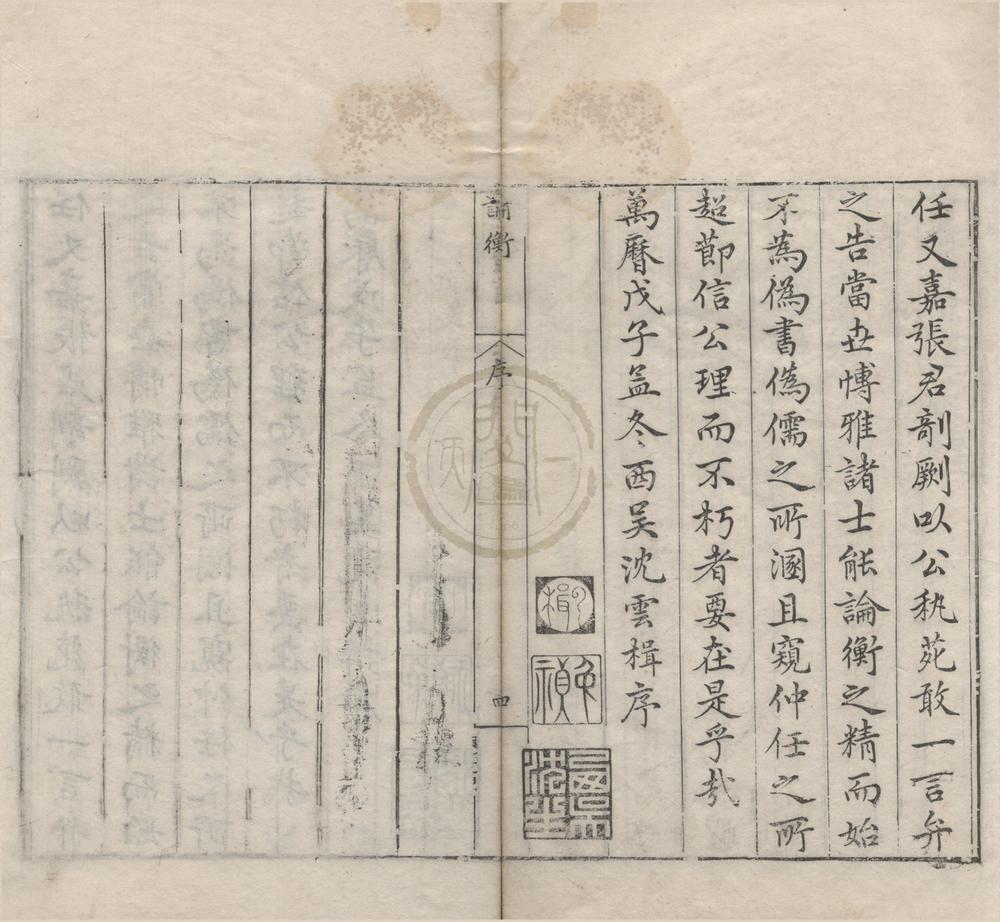 任又嘉張君剞劂以公秇苑敢一言弁
之告當丗愽雅諸士能論衡之精而始
不為偽書偽儒之所溷且窺仲任之所
超莭信公理而不朽者要在是乎㢤
萬曆戊子孟冬西吴沈雲楫序
楫
論衡
序
四